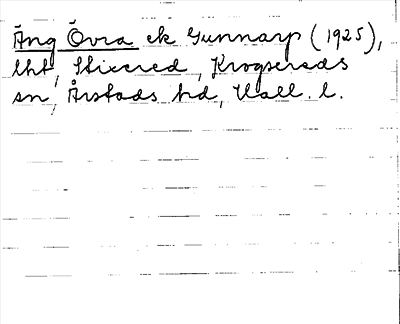 Äng Övra ek Gunnarp (1925),
lht, Stixered, Krogsereds
sn, Årstads hd, Hall. l.